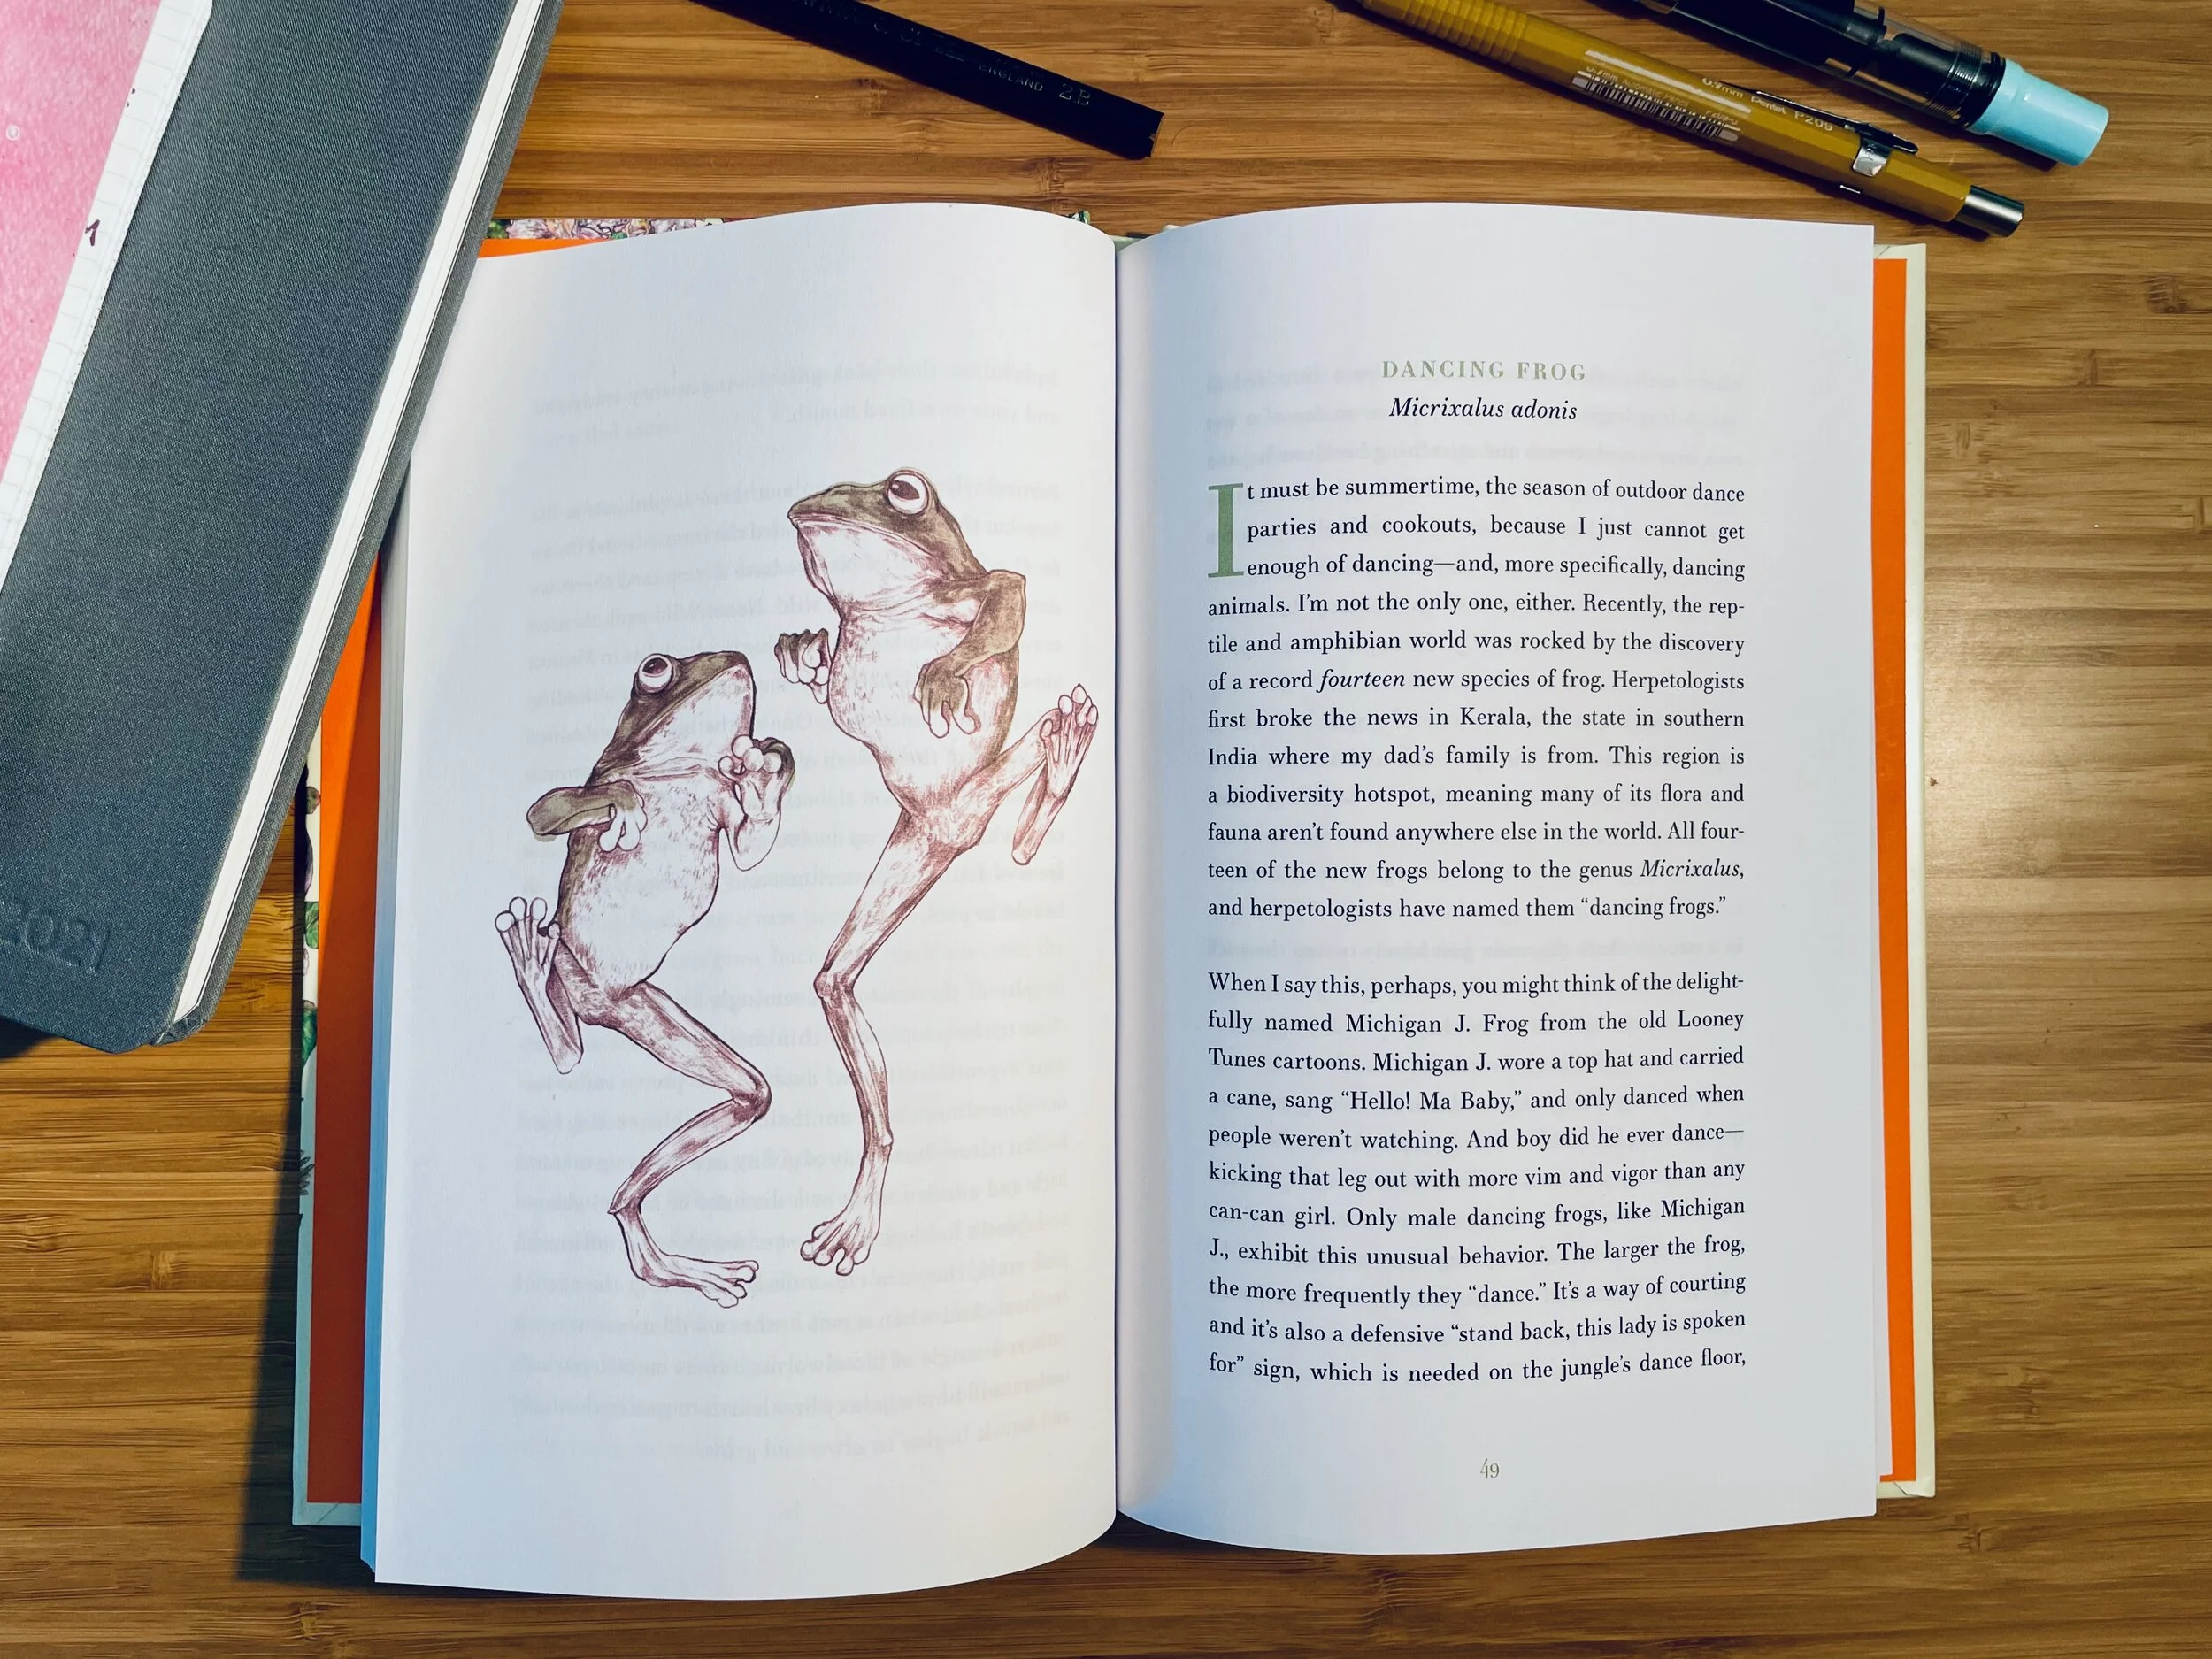 ENGLAND 2B
0.9mm Pentel P209
2021
DANCING FROG
Micrixalus adonis
It must be summertime, the season of outdoor dance
parties and cookouts, because I just cannot get
enough of dancing—and, more specifically, dancing
animals. I’m not the only one, either. Recently, the rep-
tile and amphibian world was rocked by the discovery
of a record fourteen new species of frog. Herpetologists
first broke the news in Kerala, the state in southern
India where my dad’s family is from. This region is
a biodiversity hotspot, meaning many of its flora and
fauna aren’t found anywhere else in the world. All four-
teen of the new frogs belong to the genus Micrixalus,
and herpetologists have named them “dancing frogs.”
When I say this, perhaps, you might think of the delight-
fully named Michigan J. Frog from the old Looney
Tunes cartoons. Michigan J. wore a top hat and carried
a cane, sang “Hello! Ma Baby,” and only danced when
people weren’t watching. And boy did he ever dance—
kicking that leg out with more vim and vigor than any
can-can girl. Only male dancing frogs, like Michigan
J., exhibit this unusual behavior. The larger the frog,
the more frequently they “dance.” It’s a way of courting
and it’s also a defensive “stand back, this lady is spoken
for” sign, which is needed on the jungle’s dance floor,
49